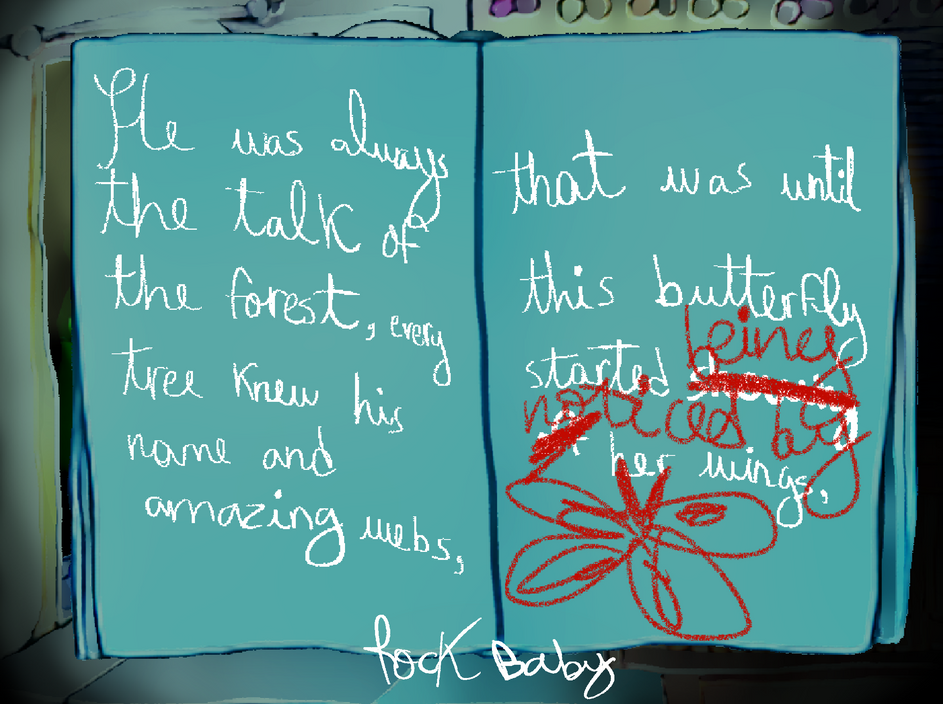 He was always
the talk of
the forest, every
tree knew his
name and
amazing webs,
that was until
this butterfly
being
started
noticed by
her wings,
Rock Baby